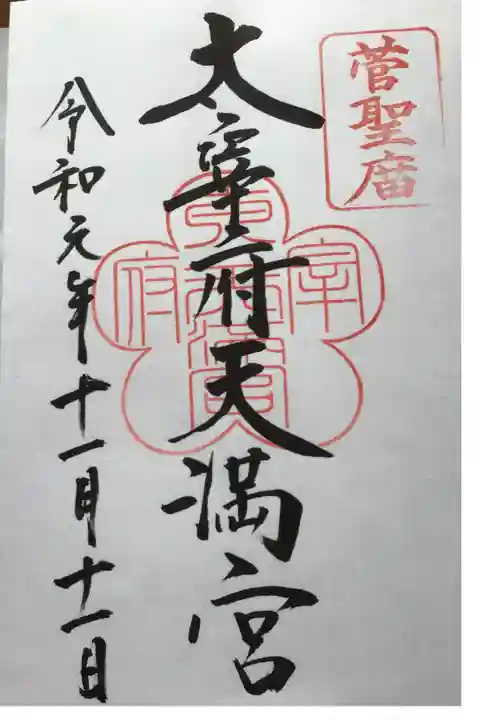 菅聖庿
太宰府天満宮
令和元年十一月十一日